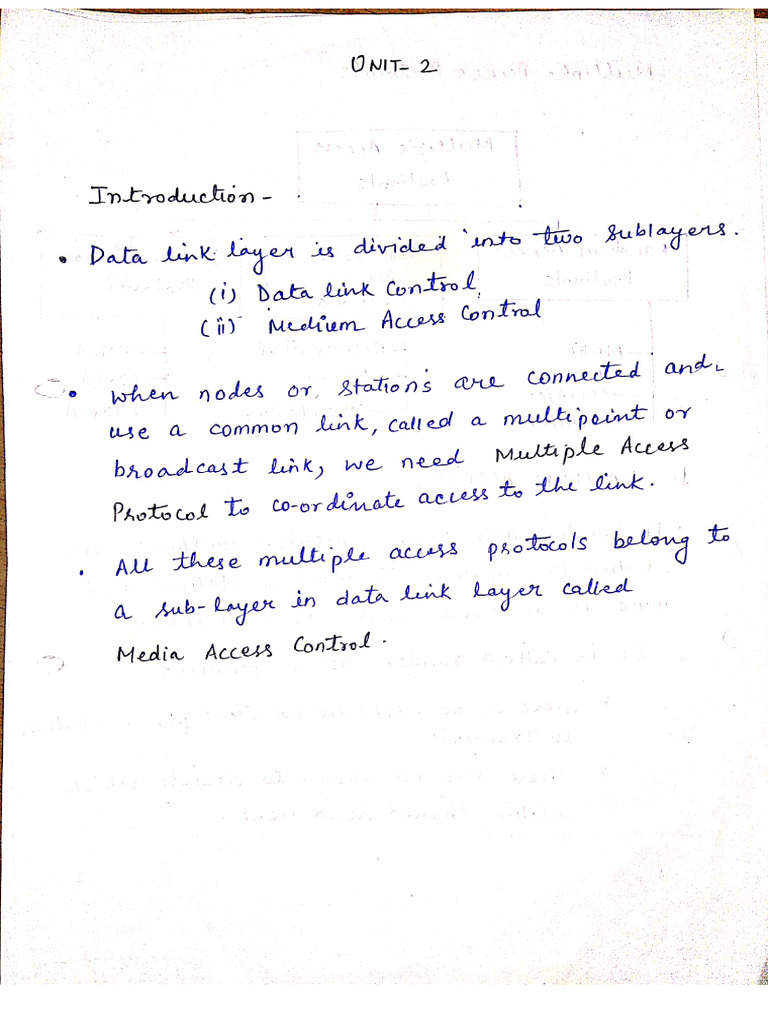 UNIT- 2
Introduction -
• Data link layer is divided into two sublayers.
(i) Data link Control,
(ii) Medium Access Control
• When nodes or stations are connected and
use a common link, called a multipoint or
broadcast link, we need Multiple Access
Protocol to co-ordinate access to the link.
• All these multiple access protocols belong to
a sub-layer in data link layer called
Media Access Control.